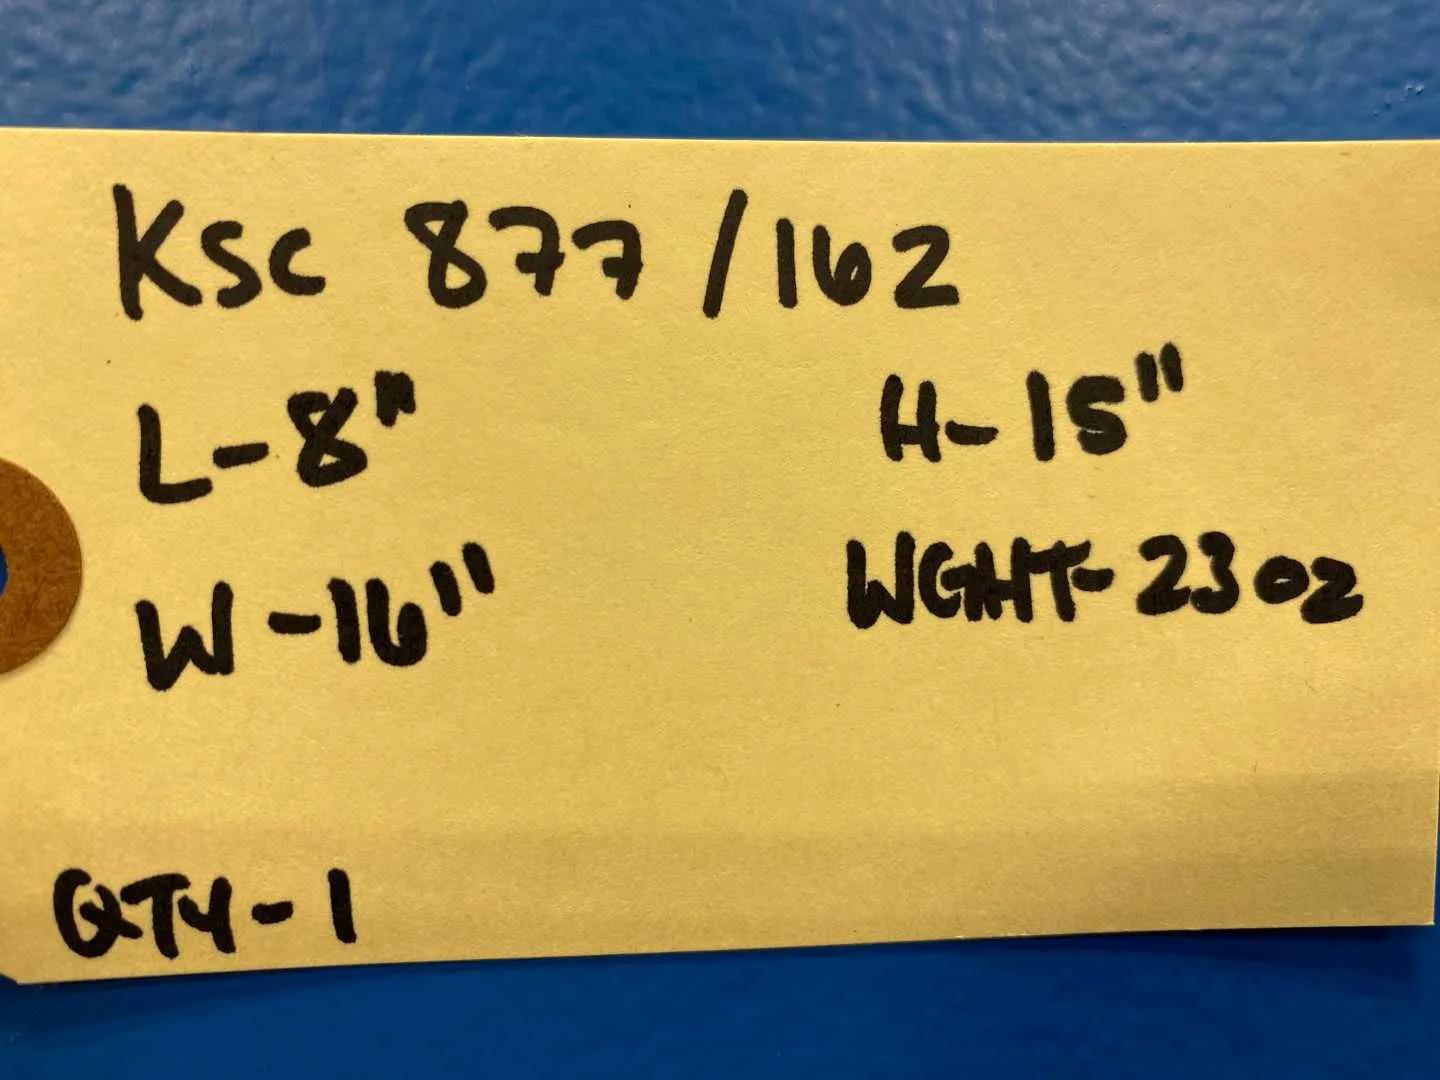 KSC 877/162
L-8" H-15"
W-16" WGHT-23oz
QTY-1